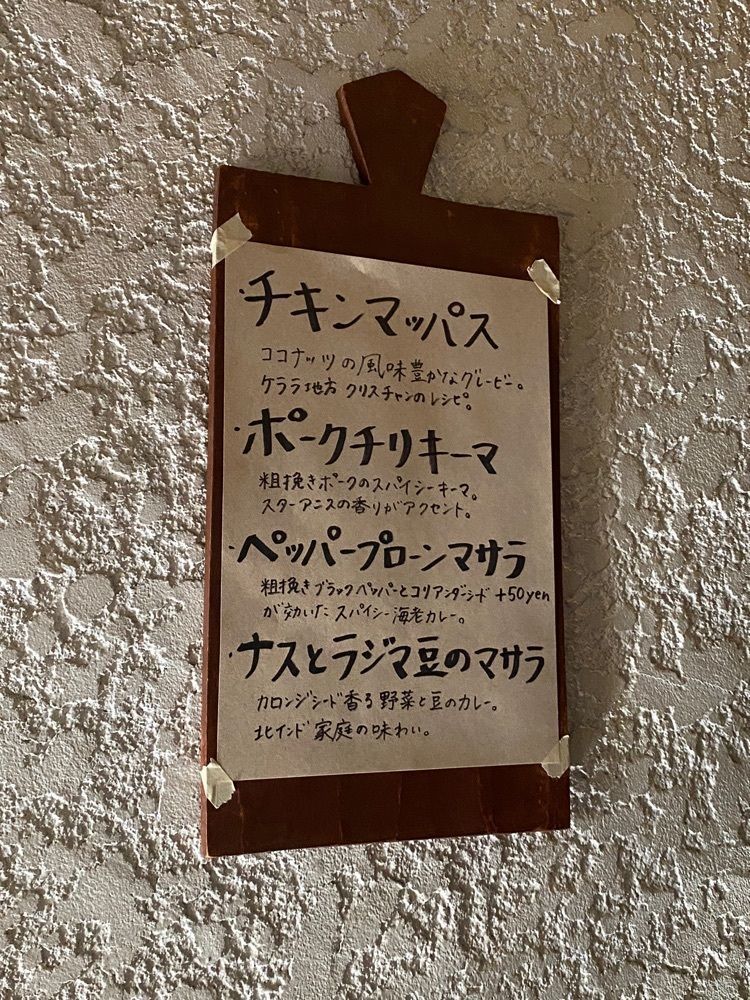 ・チキンマッパス
ココナッツの風味豊かなグレービー。
ケララ地方 クリスチャンのレシピ。
・ポークチリキーマ
粗挽きポークのスパイシーキーマ。
スターアニスの香りがアクセント。
・ペッパープローンマサラ
粗挽きブラックペッパーとコリアンダーシード +50yen
が効いた スパイシー海老カレー。
・ナスとラジマ豆のマサラ
カロンジシード香る野菜と豆のカレー。
北インド 家庭の味わい。